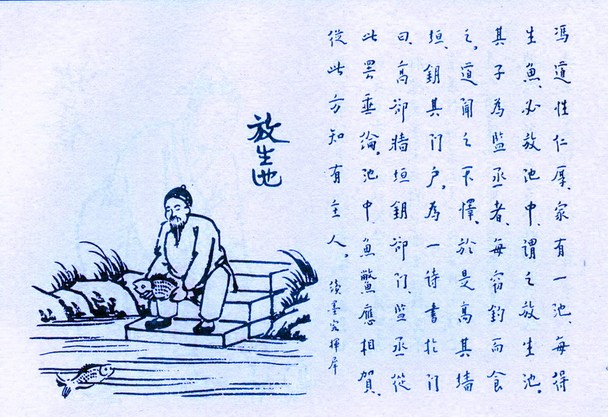 馮道性仁厚、家有一池、每得
生魚、必放池中、謂之放生池。
其子為監丞者、每窃釣而食
之。道聞之不懌、於是高其墙
垣、鈅其门户、為一诗書於门
曰、高却墙垣鈅却门、监丞從
此罢垂綸。池中魚鱉應相賀、
從此方知有主人。 墨客揮犀
放生池